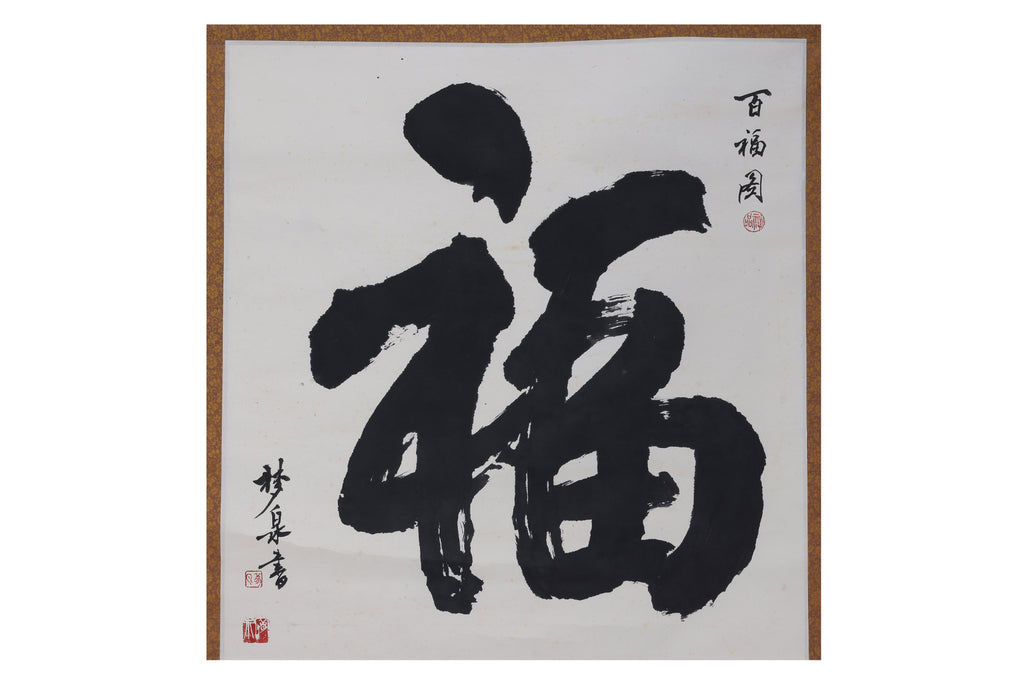 百福图
福
梦泉书